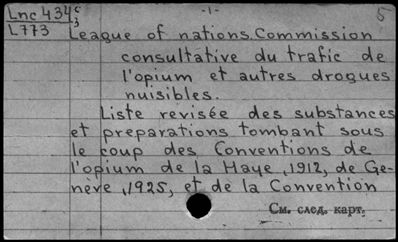 Lnc 434c -1- 5
L773
League of nations. Commission
consultative du trafic de
l'opium et autres drogues
nuisibles.
Liste revisée des substances
et preparations tombant sous
le coup des Conventions de
l'opium de la Haye, 1912, de Ge-
nève, 1925, et de la Convention
См. след. карт.